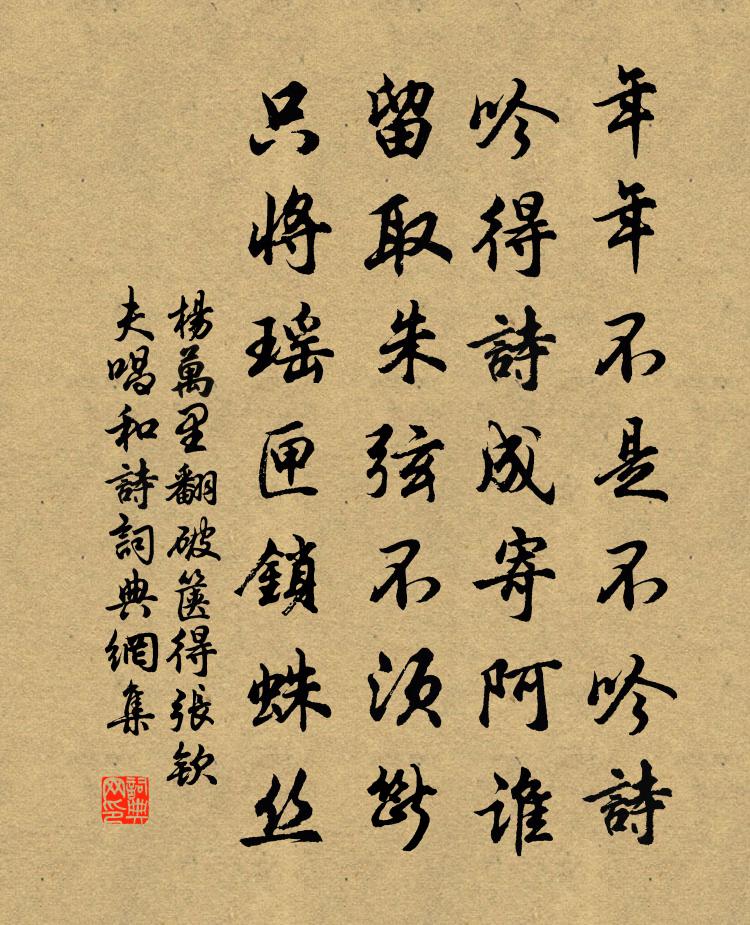 年年不是不吟詩
吟得詩成寄阿誰
留取朱弦不須斷
只將瑶匣鎖蛛丝
楊萬里翻破篋得張欽
夫唱和詩詞典網集
詞典网印